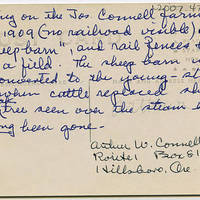 2007.4
ing on the Jos Connell farm
1909 (no railroad visible)
eep barn", and rail fences
a field. The sheep barn
converted to the young-st
when cattle replaced sh
tree seen over the steam
ng been gone.
Arthur W. Connell
Route 1 Box 81
Hillsboro, Ore